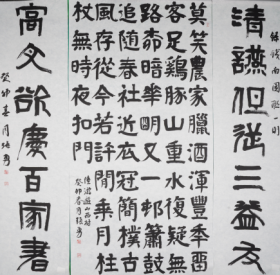 清讌但延三益友
莫笑農家臘酒渾豐季畱
客足鷄豚山重水複疑無
路柳暗華明又一邨簫鼓
追隨春社近衣冠簡樸古
風存從今若許閒乘月柱
杖無時夜扣門
陸游遊山西村
癸卯春月張勇
高文欲慶百家書
癸卯春月張勇